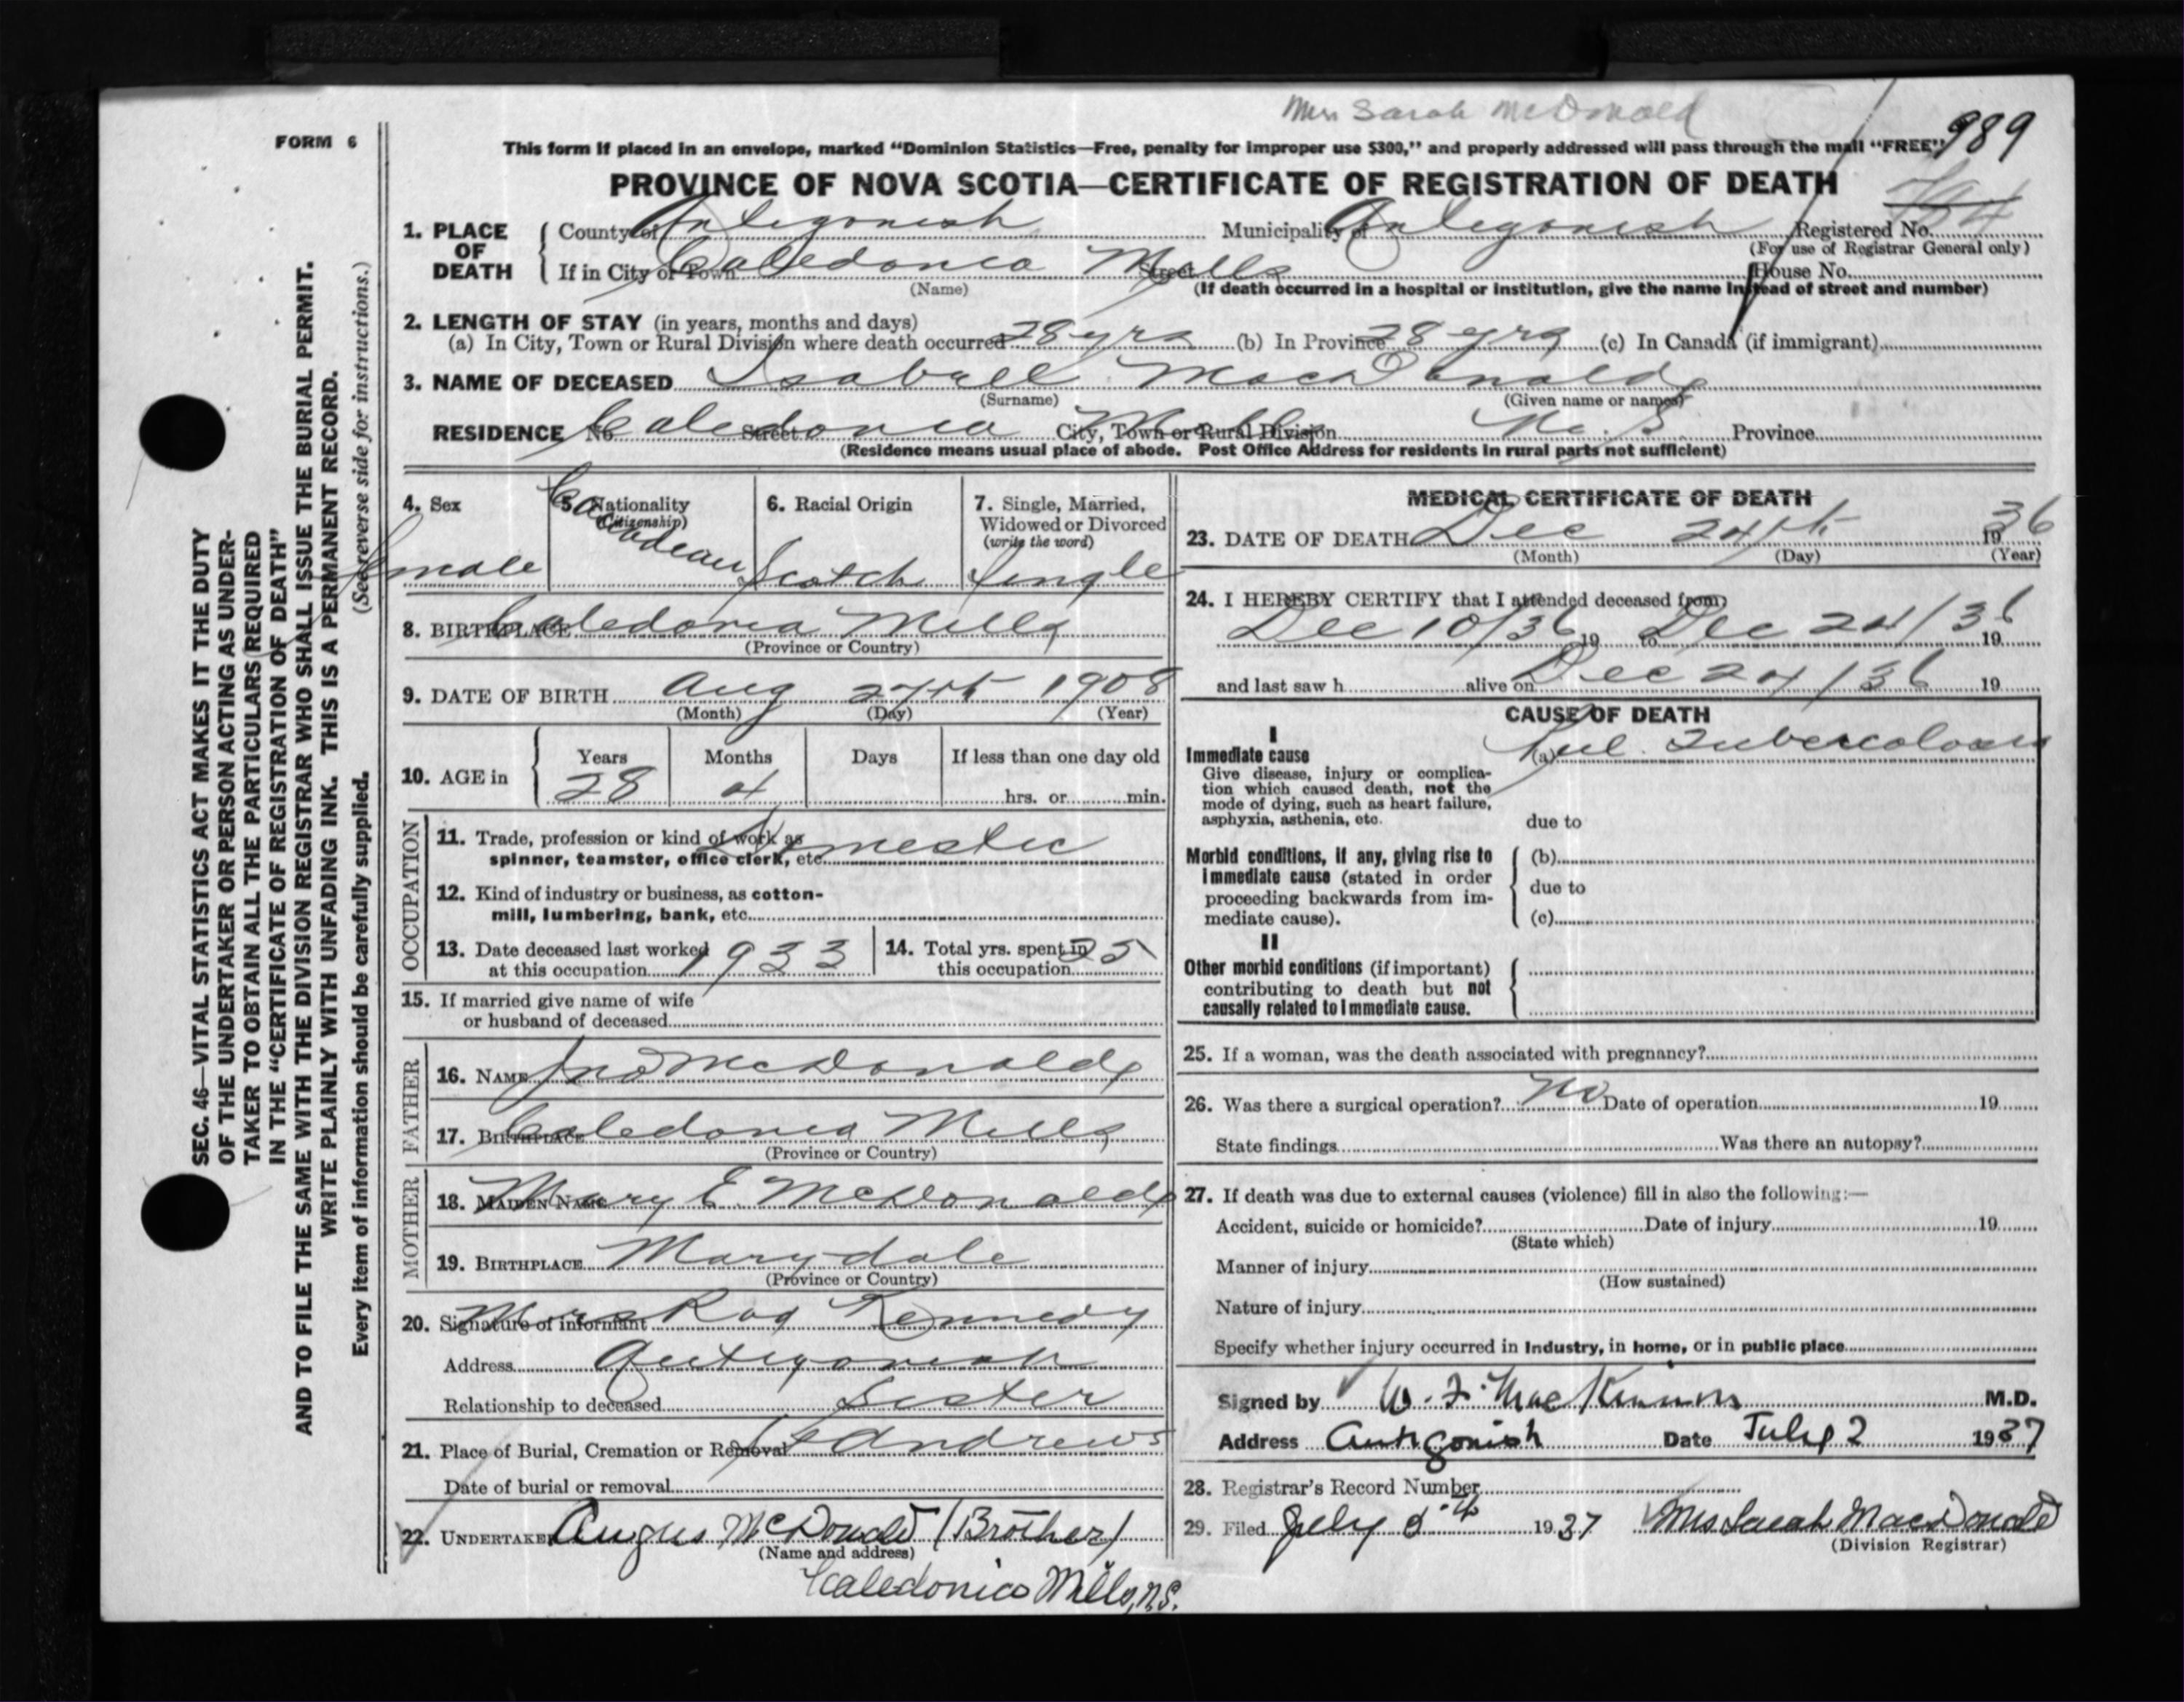 Mrs Sarah McDonald
FORM 6
This form if placed in an envelope, marked “Dominion Statistics—Free, penalty for improper use $300,” and properly addressed will pass through the mail “FREE” 989
PROVINCE OF NOVA SCOTIA—CERTIFICATE OF REGISTRATION OF DEATH
1. PLACE OF DEATH { County of Antigonish Municipality of Antigonish Registered No.
(For use of Registrar General only)
If in City or Town Caledonia Mills Street House No.
(Name) (If death occurred in a hospital or institution, give the name instead of street and number)
2. LENGTH OF STAY (in years, months and days)
(a) In City, Town or Rural Division where death occurred 28 yrs (b) In Province 28 yrs (c) In Canada (if immigrant)
3. NAME OF DECEASED Isabell MacDonald
(Surname) (Given name or names)
RESIDENCE No. Caledonia Street City, Town or Rural Division Mills N. S. Province
(Residence means usual place of abode. Post Office Address for residents in rural parts not sufficient)
4. Sex
female
5. Nationality
(Citizenship)
Canadean
6. Racial Origin
Scotch
7. Single, Married,
Widowed or Divorced
(write the word)
Single
8. BIRTHPLACE Caledonia Mills
(Province or Country)
9. DATE OF BIRTH Aug 27th 1908
(Month) (Day) (Year)
10. AGE in { Years Months Days If less than one day old
28 4 hrs. or min.
OCCUPATION
11. Trade, profession or kind of work as
spinner, teamster, office clerk, etc. Domestic
12. Kind of industry or business, as cotton-
mill, lumbering, bank, etc.
13. Date deceased last worked
at this occupation 1933
14. Total yrs. spent in
this occupation 25
15. If married give name of wife
or husband of deceased
FATHER
16. NAME Jno McDonald
17. BIRTHPLACE Caledonia Mills
(Province or Country)
MOTHER
18. MAIDEN NAME Mary E. McDonald
19. BIRTHPLACE Marydale
(Province or Country)
20. Signature of informant Mrs Rod Kennedy
Address Antigonish
Relationship to deceased Sister
21. Place of Burial, Cremation or Removal St Andrews
Date of burial or removal
22. UNDERTAKER Angus McDonald (Brother)
(Name and address)
Caledonia Mills, N.S.
MEDICAL CERTIFICATE OF DEATH
23. DATE OF DEATH Dec 24th 1936
(Month) (Day) (Year)
24. I HEREBY CERTIFY that I attended deceased from
Dec 10/36 19 to Dec 24/36 19
and last saw h alive on Dec 24/36 19
CAUSE OF DEATH
I
Immediate cause
Give disease, injury or complica-
tion which caused death, not the
mode of dying, such as heart failure,
asphyxia, asthenia, etc.
(a) Pul. Tuberculosis
due to
Morbid conditions, if any, giving rise to
immediate cause (stated in order
proceeding backwards from im-
mediate cause).
(b)
due to
(c)
II
Other morbid conditions (if important)
contributing to death but not
causally related to immediate cause.
25. If a woman, was the death associated with pregnancy?
26. Was there a surgical operation? No Date of operation 19
State findings Was there an autopsy?
27. If death was due to external causes (violence) fill in also the following:—
Accident, suicide or homicide? Date of injury 19
(State which)
Manner of injury
(How sustained)
Nature of injury
Specify whether injury occurred in Industry, in home, or in public place
Signed by W. F. MacKinnon M.D.
Address Antigonish Date July 2 1937
28. Registrar's Record Number
29. Filed July 5th 1937 Mrs Sarah MacDonald
(Division Registrar)
SEC. 46—VITAL STATISTICS ACT MAKES IT THE DUTY
OF THE UNDERTAKER OR PERSON ACTING AS UNDER-
TAKER TO OBTAIN ALL THE PARTICULARS REQUIRED
IN THE “CERTIFICATE OF REGISTRATION OF DEATH”
AND TO FILE THE SAME WITH THE DIVISION REGISTRAR WHO SHALL ISSUE THE BURIAL PERMIT.
WRITE PLAINLY WITH UNFADING INK. THIS IS A PERMANENT RECORD.
Every item of information should be carefully supplied. (See reverse side for instructions.)